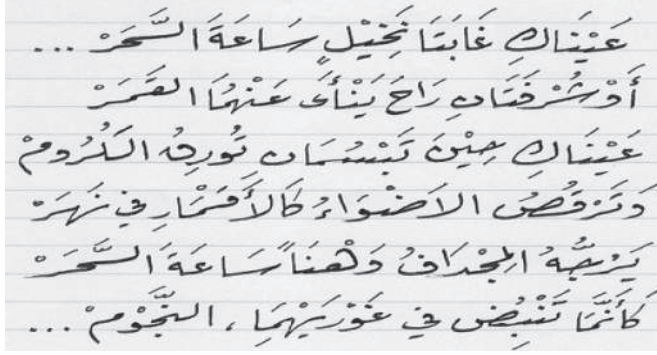 عَيْنَاكِ غَابَتَا نَخِيْلٍ سَاعَةَ السَّحَرْ ...
أَوْ شُرْفَتَانِ رَاحَ يَنْأَى عَنْهُمَا القَمَرْ
عَيْنَاكِ حِيْنَ تَبْسُمَانِ تُورِقُ الكُرُومْ
وَتَرْقُصُ الأَضْوَاءُ كَالأَقْمَارِ في نَهَرْ
يَرُجُّهُ المِجْدَافُ وَهْنَاً سَاعَةَ السَّحَرْ
كَأَنَّمَا تَنْبُضُ في غَوْرَيْهِمَا ، النُّجُوْمْ ...